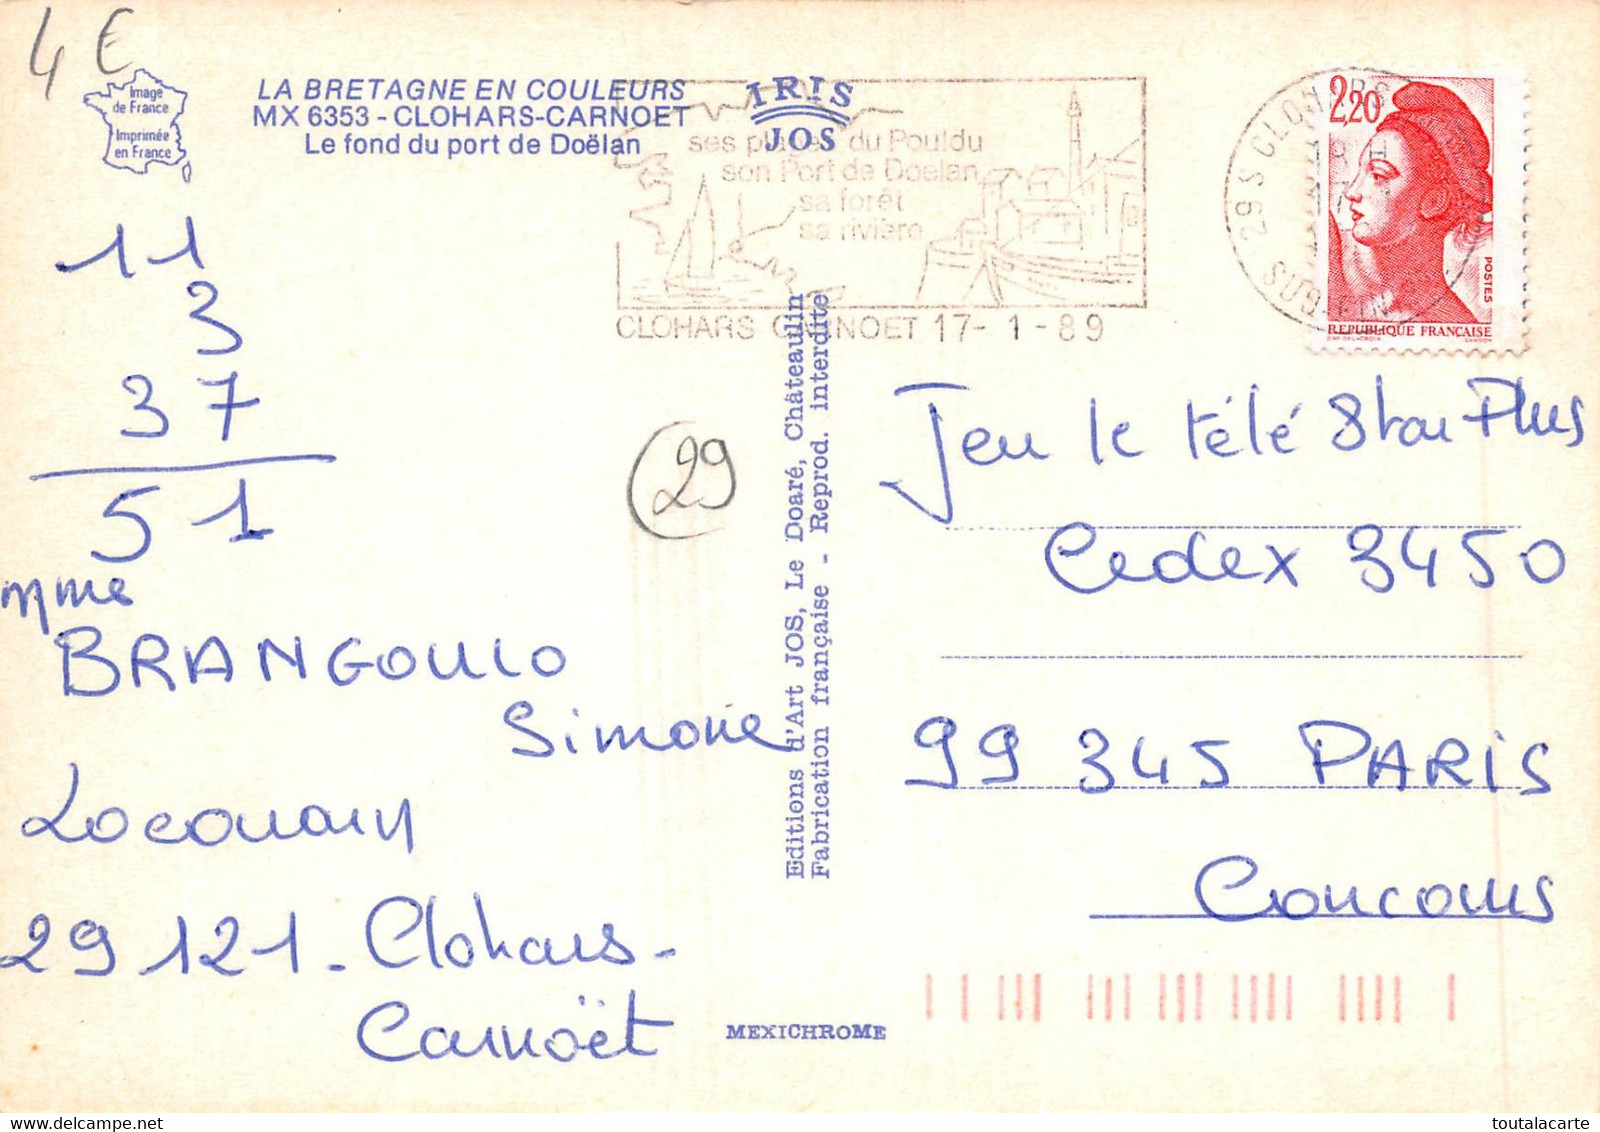 4 €
Image
de France
Imprimée
en France
LA BRETAGNE EN COULEURS
MX 6353 - CLOHARS-CARNOET
Le fond du port de Doëlan
IRIS
JOS
ses plages du Pouldu
son Port de Doelan
sa forêt
sa rivière
CLOHARS CARNOET 17- 1 - 89
29 S CLOHARS
SUD FINS
2,20
POSTES
REPUBLIQUE FRANÇAISE
11
3
37
51
Mme
BRANGOULO
Simone
Locouarn
29 121 - Clohars-
Carnoët
(29
Editions d'Art JOS, Le Doaré, Châteaulin
Fabrication française - Reprod. interdite
MEXICHROME
Jeu le télé Star Plus
Cedex 3450
99 345 PARIS
Concours
toutalacarte